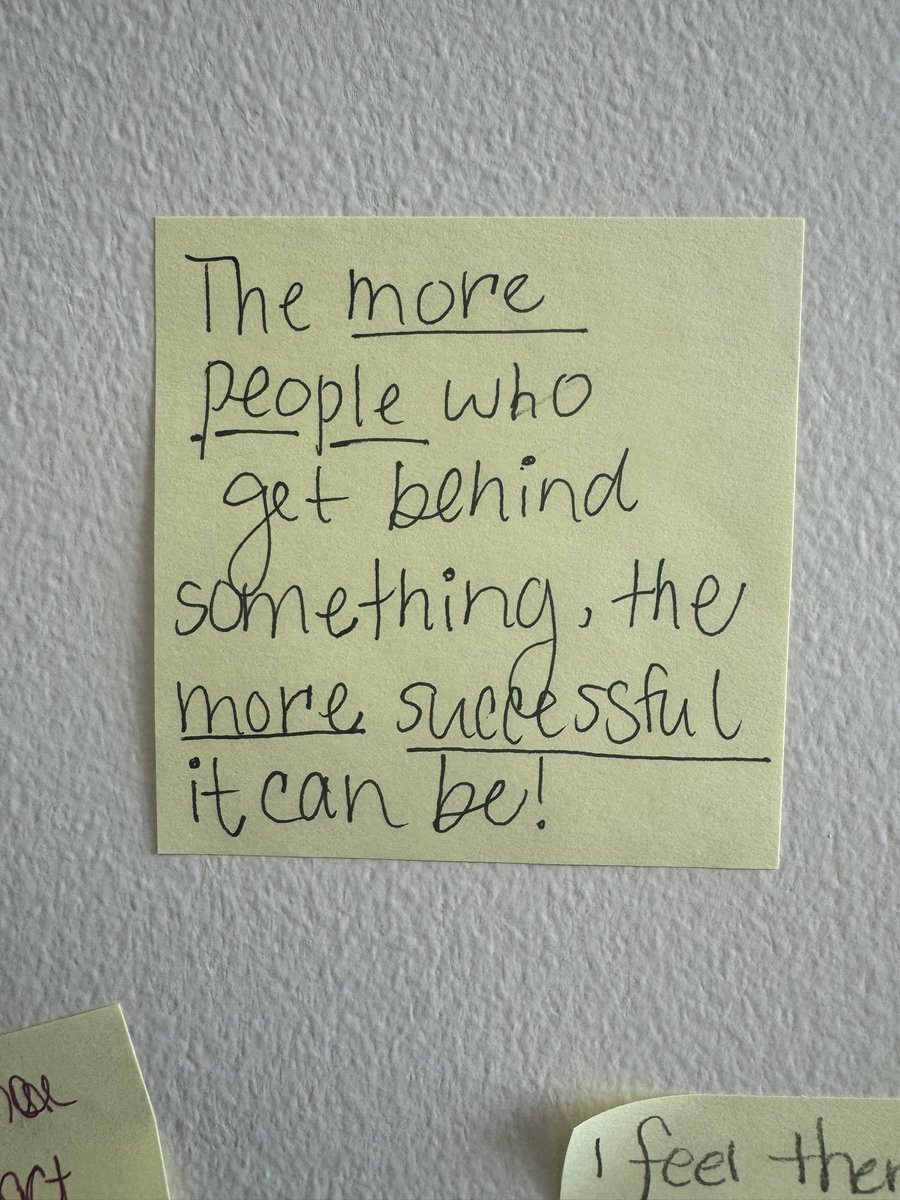 The more
people who
get behind
something, the
more successful
it can be!
I feel